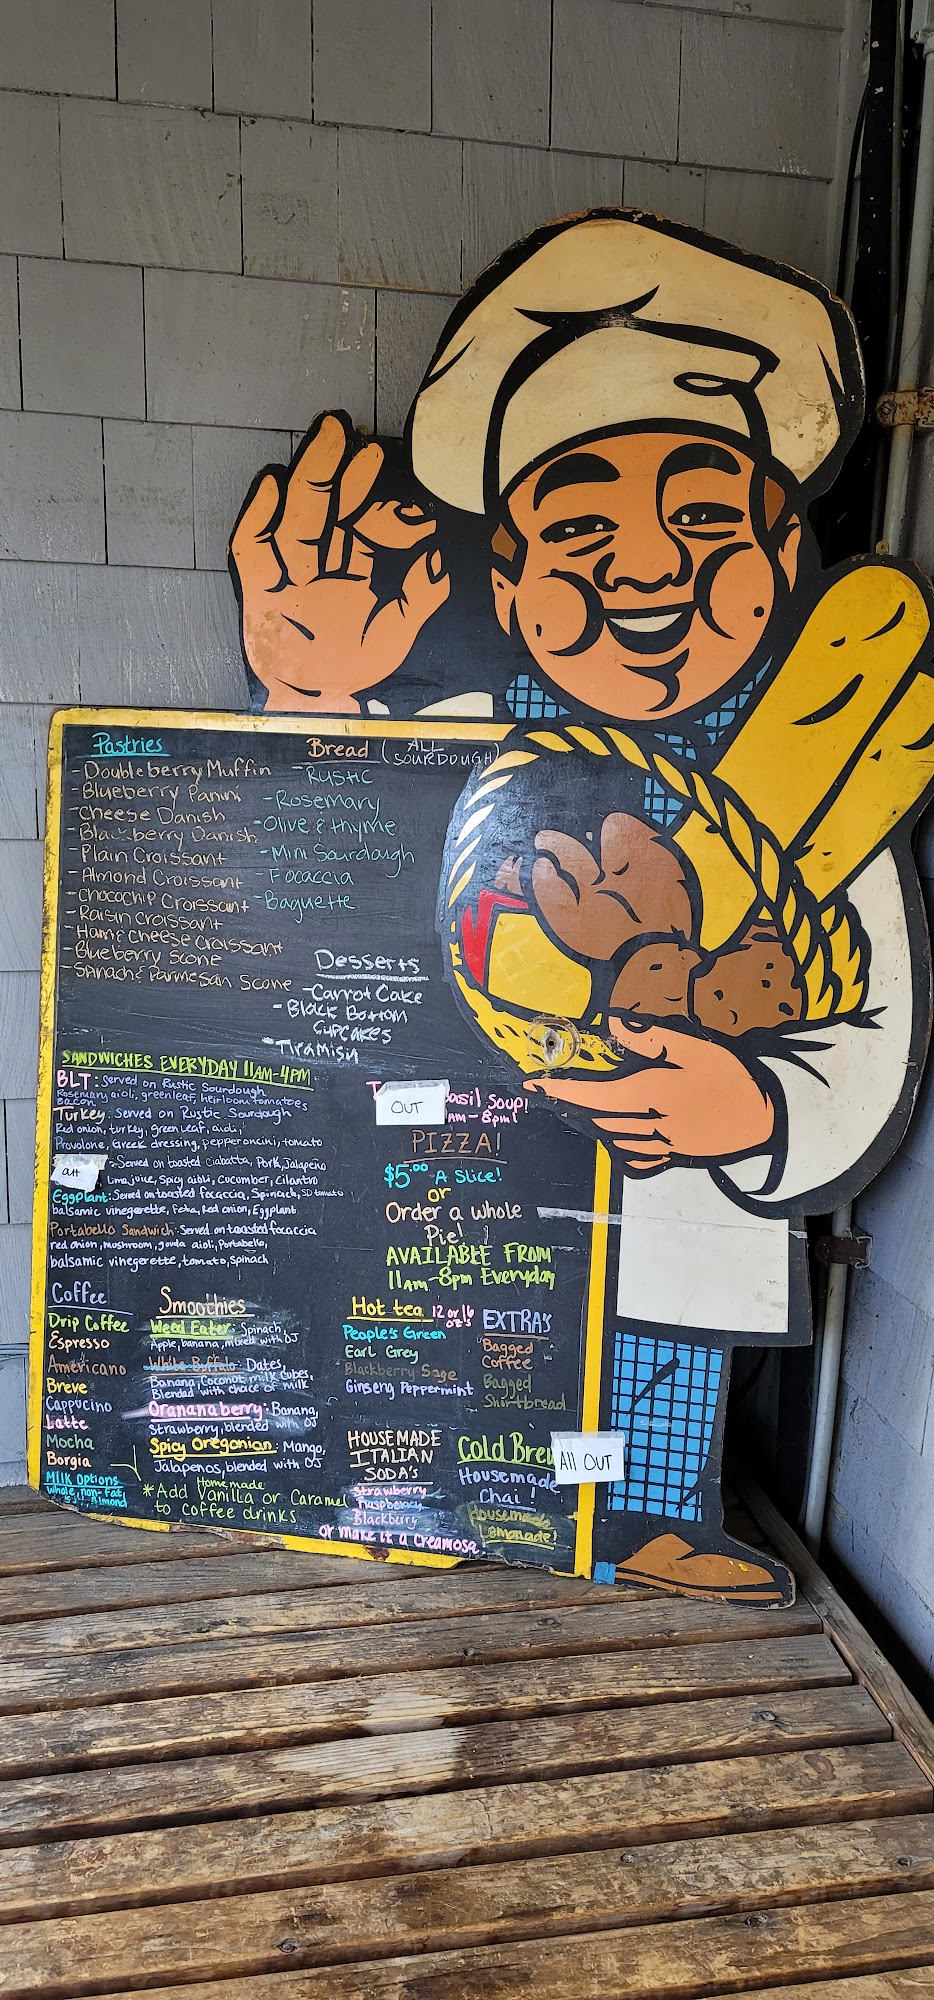 Pastries
- Doubleberry Muffin
- Blueberry Panini
- Cheese Danish
- Blackberry Danish
- Plain Croissant
- Almond Croissant
- Chocochip Croissant
- Raisin Croissant
- Ham & Cheese Croissant
- Blueberry Scone
- Spinach & Parmesan Scone
Bread (ALL SOURDOUGH)
- Rustic
- Rosemary
- Olive & thyme
- Mini Sourdough
- Focaccia
- Baguette
Desserts
- Carrot Cake
- Black Bottom
Cupcakes
- Tiramisu
SANDWICHES EVERYDAY 11AM-4PM
BLT: Served on Rustic Sourdough
Rosemary aioli, greenleaf, heirloom tomatoes
Bacon
Turkey: Served on Rustic Sourdough
Red onion, turkey, green leaf, aioli,
Provolone, Greek dressing, pepperoncini, tomato
: Served on toasted Ciabatta, Pork, Jalapeno
Lime juice, Spicy aioli, cucumber, cilantro
Eggplant: Served on toasted focaccia, Spinach, SD tomato
balsamic vinegerette, Feta, Red onion, Eggplant
Portabello Sandwich: Served on toasted focaccia
red onion, mushroom, gouda aioli, Portabello,
balsamic vinegerette, tomato, spinach
OUT
Basil Soup!
AM-8pm!
PIZZA!
$5.00 A Slice!
or
Order a whole
Pie!
AVAILABLE FROM
11AM-8pm Everyday
Coffee
Drip Coffee
Espresso
Americano
Breve
Cappucino
Latte
Mocha
Borgia
Milk Options
Whole, non-fat,
Soy, Almond
Smoothies
Weed Eater: Spinach,
Apple, banana, mixed with OJ
White Buffalo: Dates,
Banana, Coconut milk cubes,
Blended with choice of milk
Orananaberry: Banana,
Strawberry, blended with OJ
Spicy Oregonian: Mango,
Jalapenos, blended with OJ
Homemade
*Add Vanilla or Caramel
to coffee drinks
Hot tea 12 or 16 oz's
People's Green
Earl Grey
Blackberry Sage
Ginseng Peppermint
EXTRA'S
Bagged
Coffee
Bagged
Shortbread
HOUSEMADE
ITALIAN
SODA'S
Strawberry
Raspberry
Blackberry
or make it a creamosa!
Cold Brew
All OUT
Housemade
Chai!
Housemade
Lemonade!